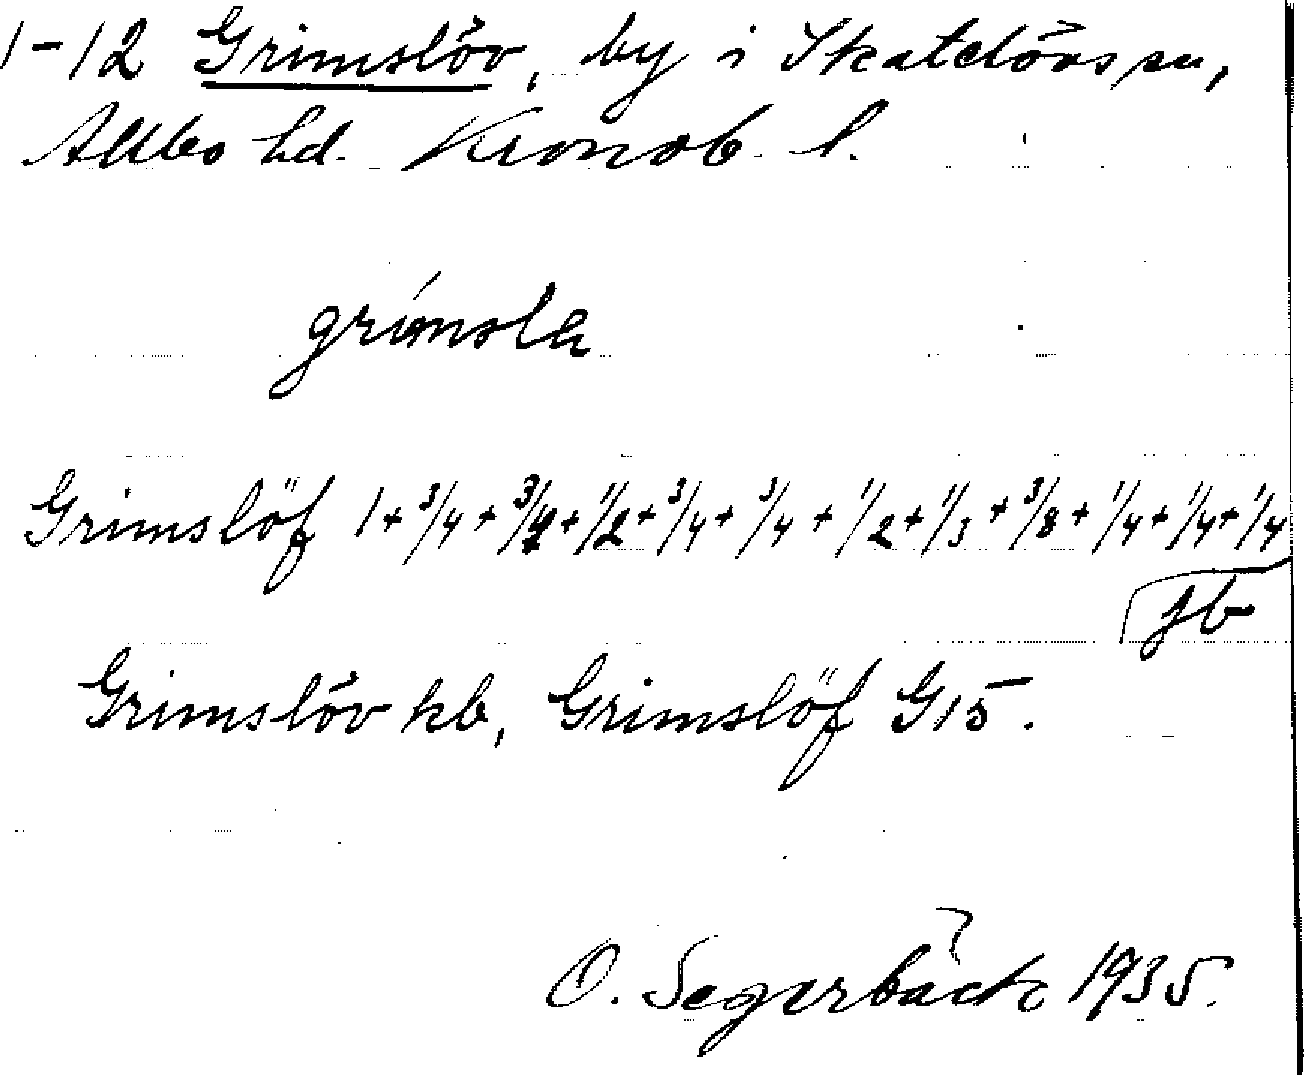 1-12 Grimslöv, by i Skatelövs sn,
Allbo hd. Kronob. l.
grímsla
Grimslöf 1+3/4+3/4+1/2+3/4+3/4+1/2+1/3+3/8+1/4+1/4+1/4
jb
Grimslöv kb, Grimslöf G15.
O. Segerbäck 1935.